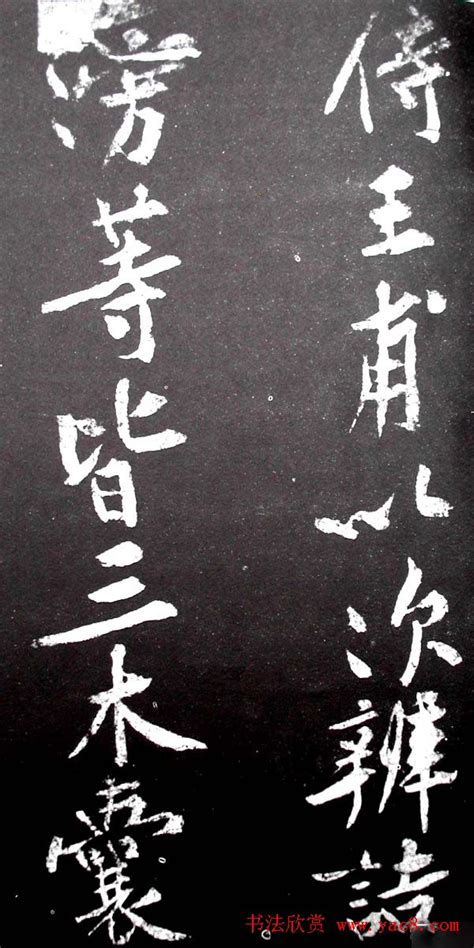 侍王甫以次辨詰
滂等皆三木囊
书法欣赏 www.yac8.com